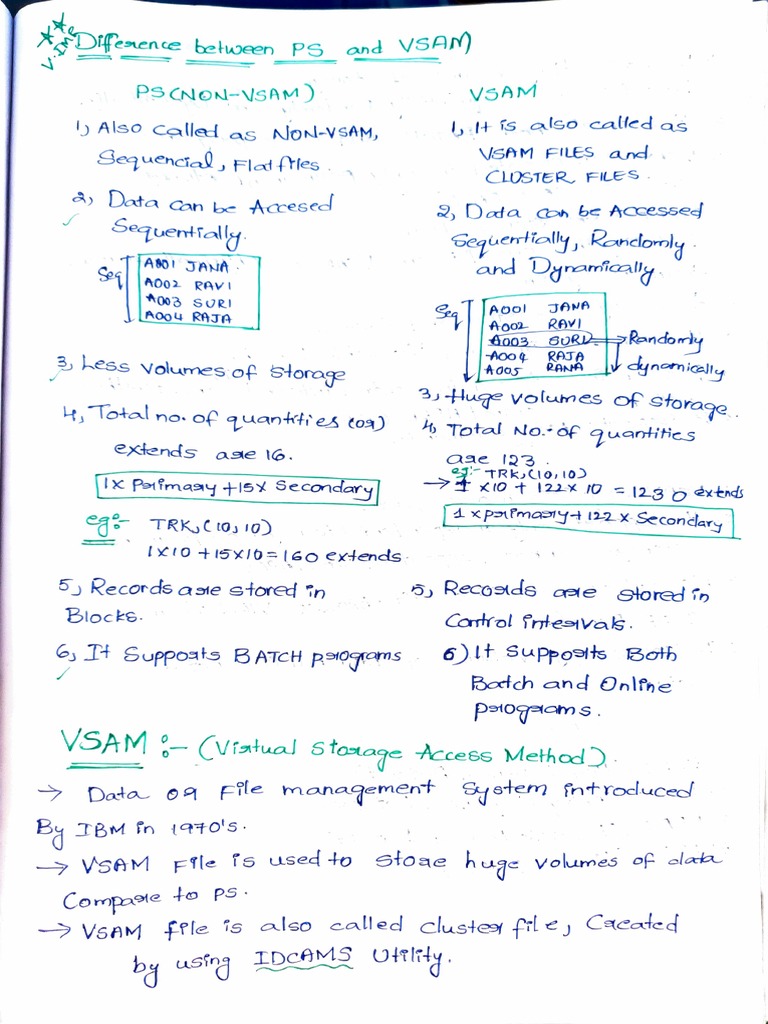 V.IMP
Difference between PS and VSAM
PS(NON-VSAM)
1, Also called as NON-VSAM,
Sequencial, Flat files.
2, Data can be Accesed
Sequentially.
Seq
A001 JANA
A002 RAVI
A003 SURI
A004 RAJA
3, Less volumes of storage
4, Total no. of quantities (or)
extends are 16.
1x Primary + 15x Secondary
eg:- TRK, (10,10)
1x10 + 15x10 = 160 extends.
5, Records are stored in
Blocks.
6, It Supports BATCH programs
VSAM
1, It is also called as
VSAM FILES and
CLUSTER FILES.
2, Data can be Accessed
Sequentially, Randomly
and Dynamically.
Seq
A001 JANA
A002 RAVI
A003 SURI → Randomly
A004 RAJA dynamically
A005 RANA
3, Huge volumes of storage.
4, Total No. of quantities
are 123.
eg:- TRK, (10,10)
→ 1 x10 + 122 x 10 = 1230 extends
1 x primary + 122 x Secondary
5, Records are stored in
Control intervals.
6) It Supports Both
Batch and Online
programs.
VSAM :- (Virtual Storage Access Method).
→ Data or File management System introduced
By IBM in 1970's.
→ VSAM File is used to store huge volumes of data
Compare to PS.
→ VSAM file is also called cluster file, Created
by using IDCAMS Utility.